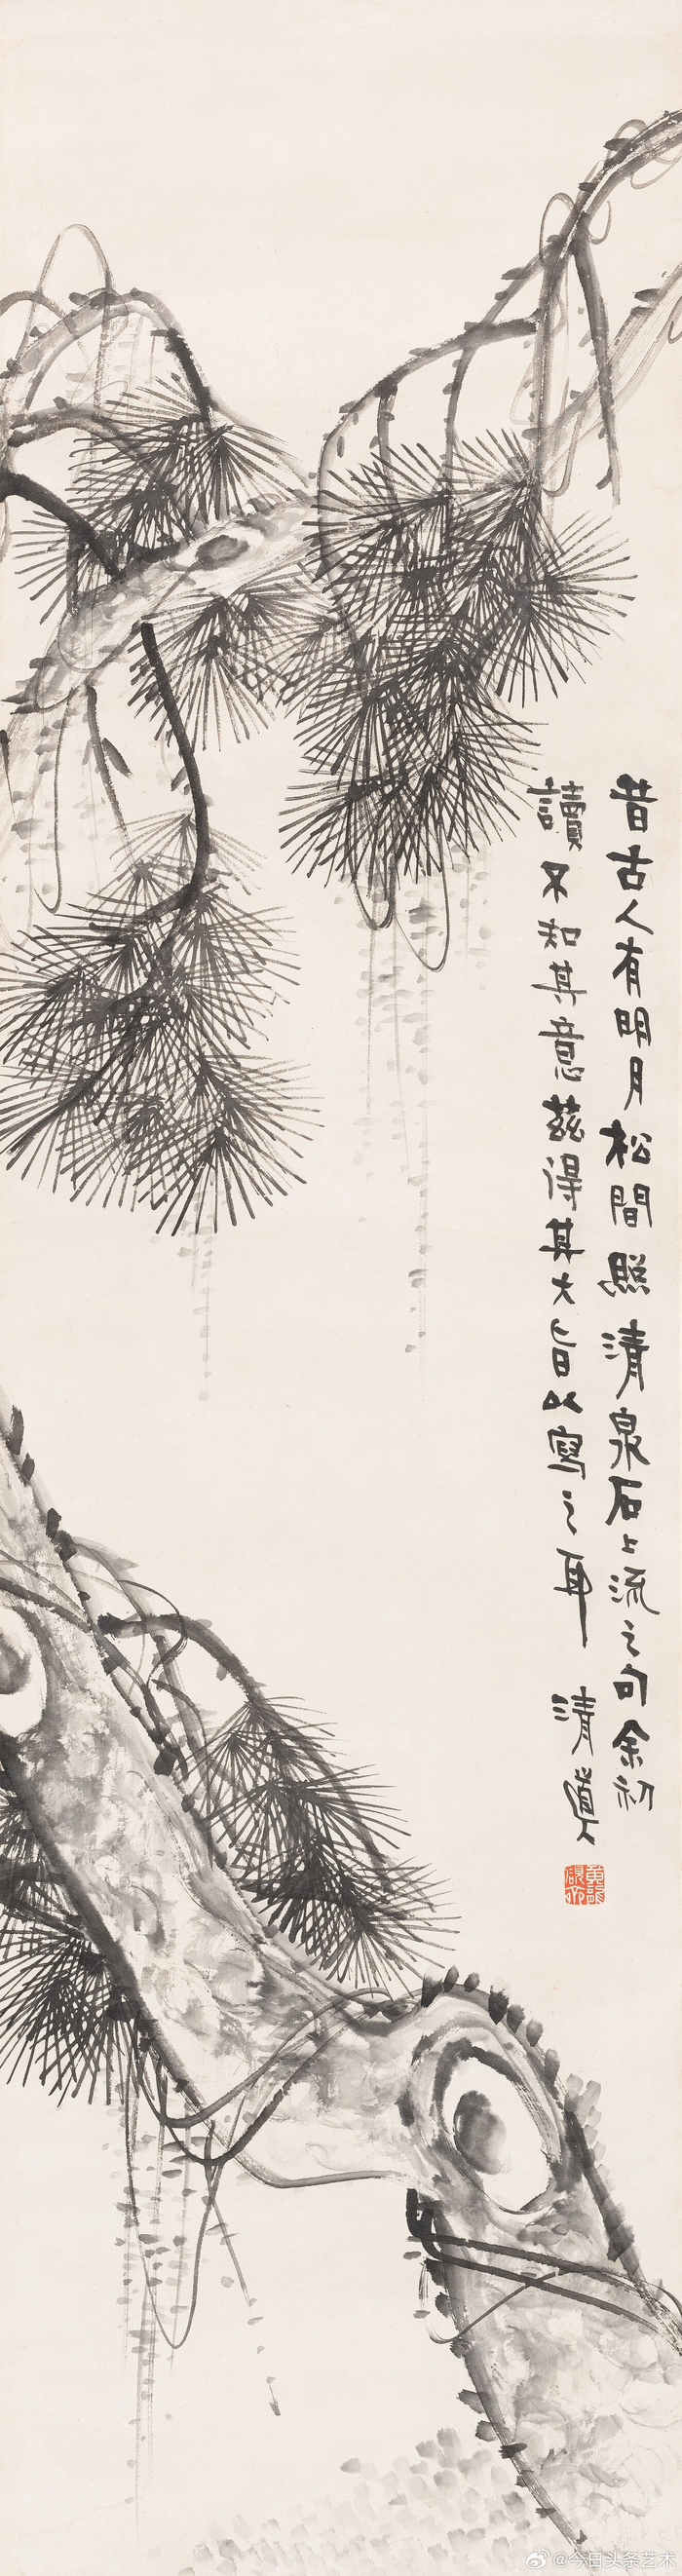 昔古人有明月松間照清泉石上流之句余初
讀不知其意茲得其大旨以寫之耳
清道人
@今日头条艺术